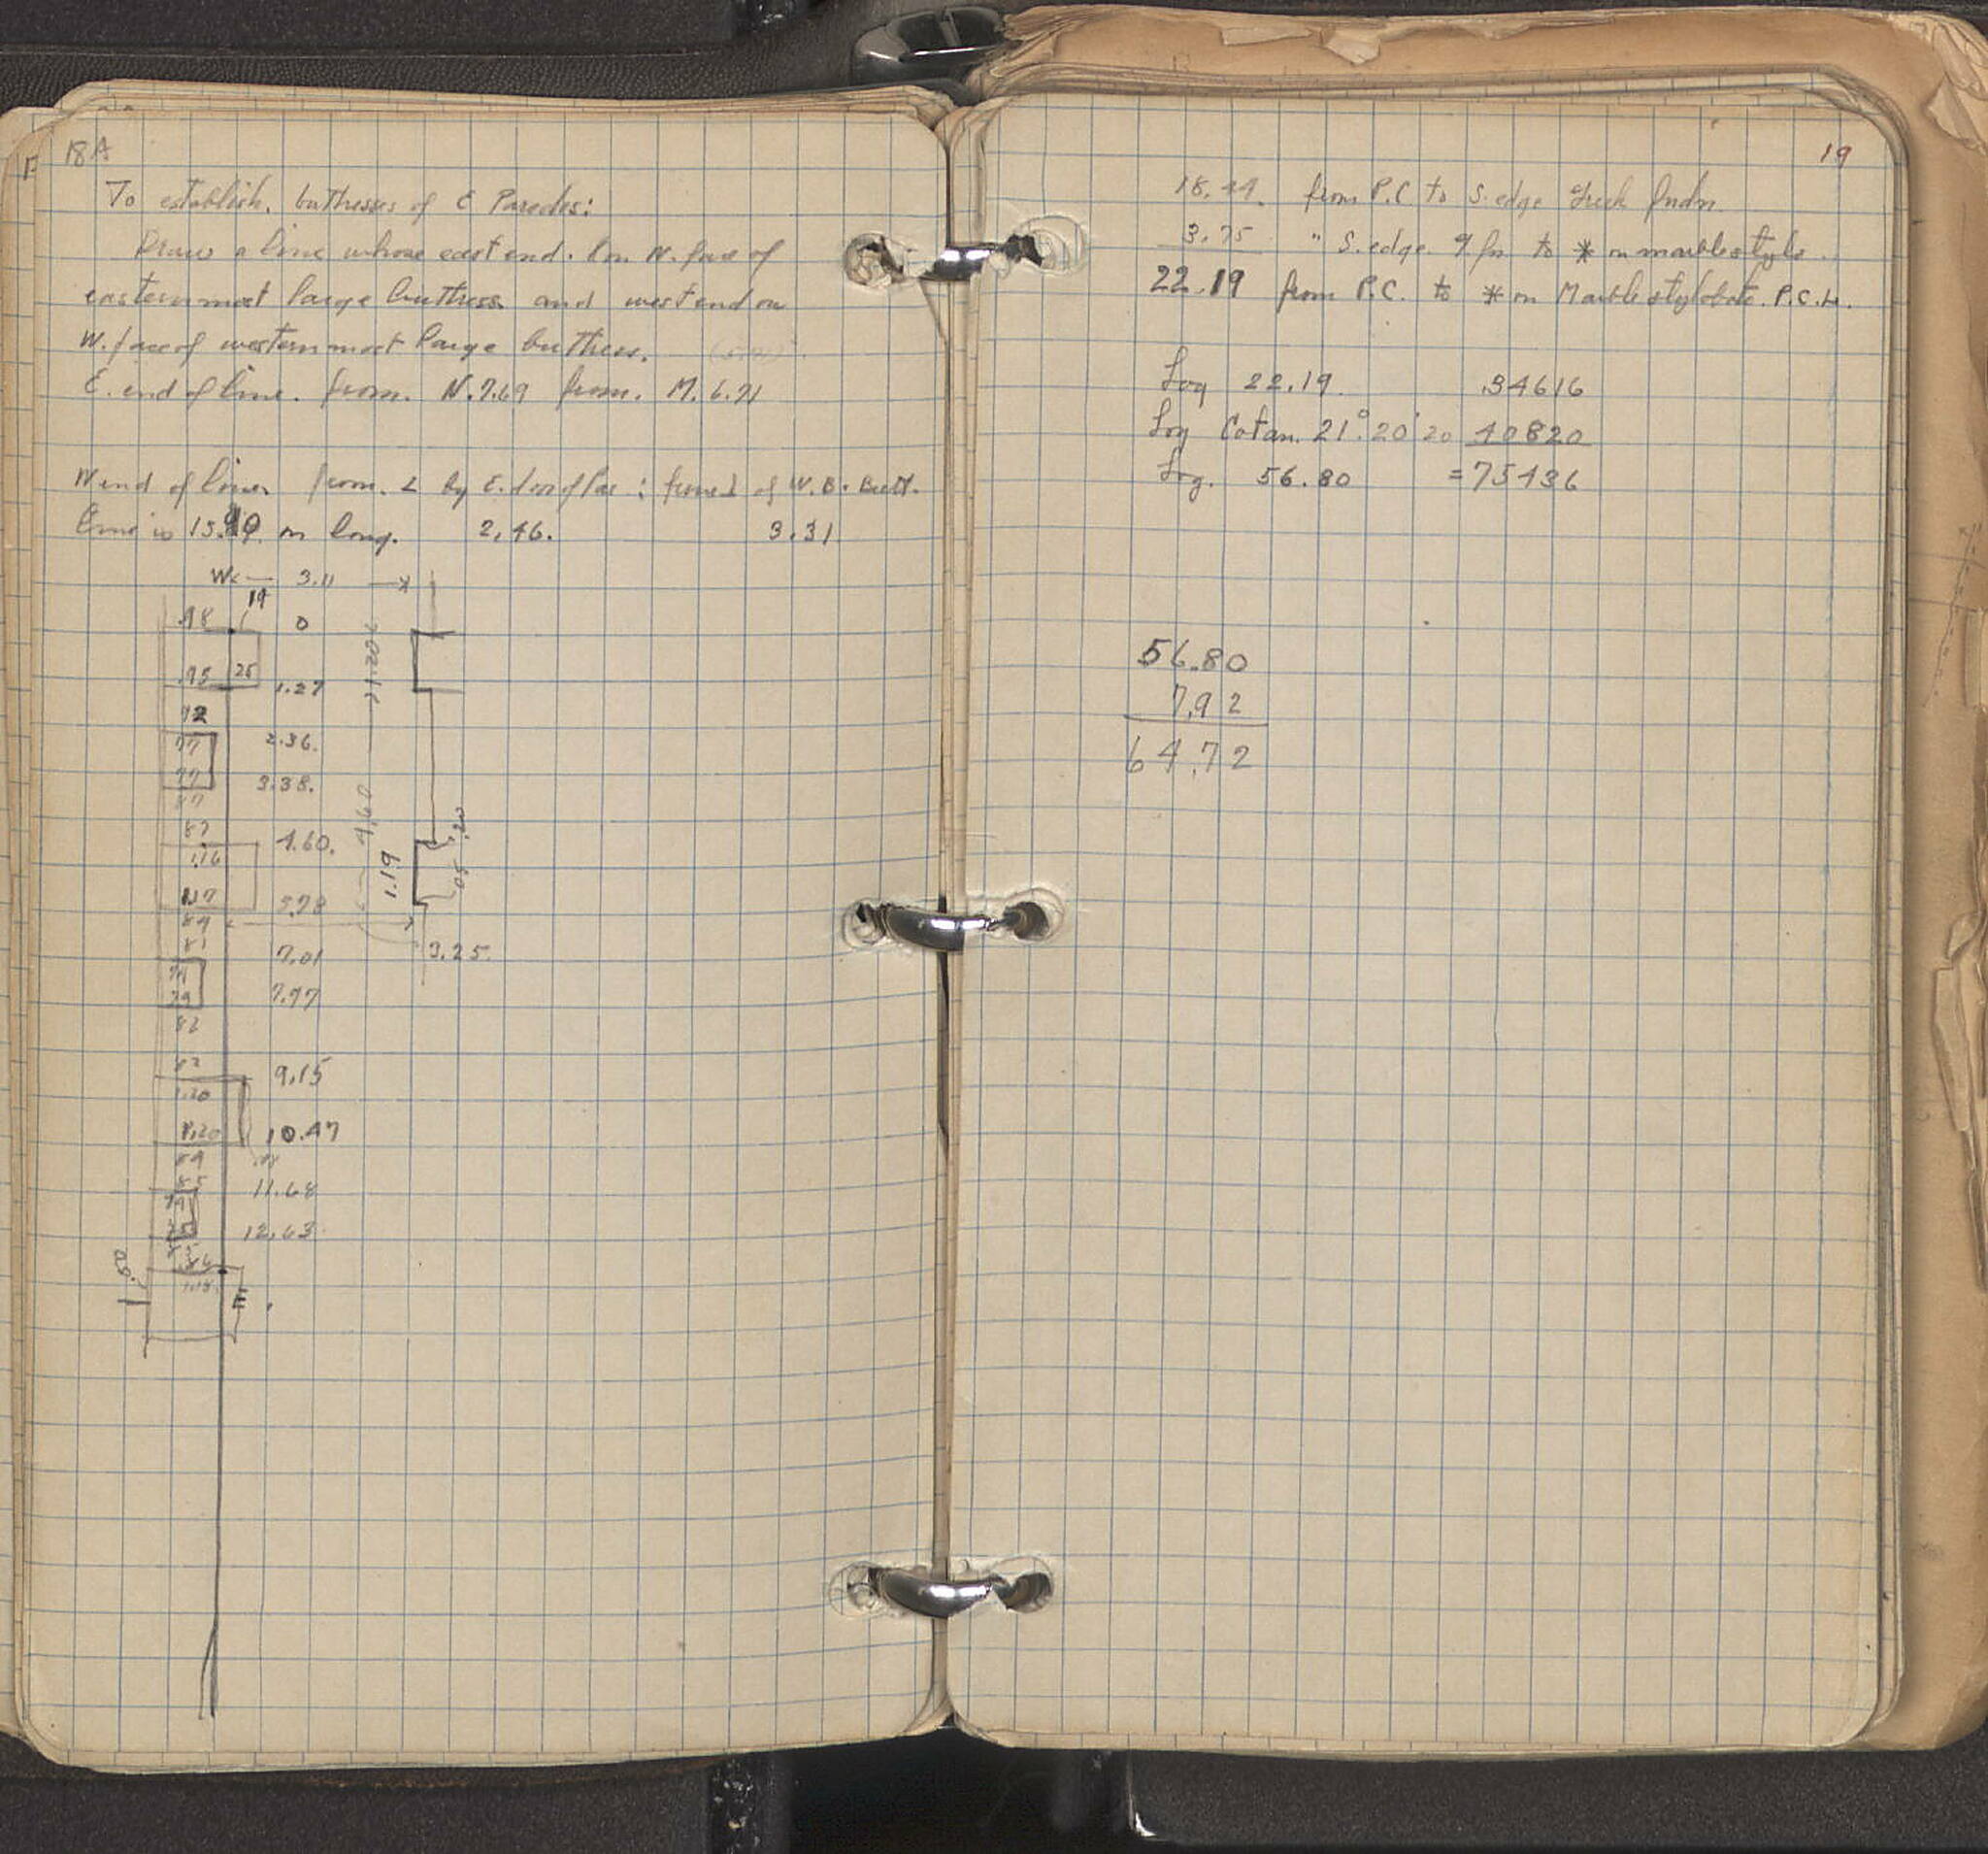 18A
To establish. buttresses of E Parodos:
Draw a line whose east end. on N. face of
easternmost large buttress and west end on
W. face of westernmost large buttress.
E. end of line. from. N. 7.69 from. M. 6.71
W end of line from. L by E. door of : from of W. B. Butt.
Line is 15.90 m long. 2.46. 3.31
W 3.11
19
.98 0
.95 25 1.27
92
77 2.36.
77 3.38.
87
87 4.60.
1.16
1.17 5.78
89
81 7.01
79 7.97
82
82 9.15
1.20
1.20 10.47
89
85 11.68
12.63
1.18 E
1.50
1.20
4.60
1.19
.20
.05
3.25
19
18.44. from P.C to S. edge Greek fndn.
3.75 " S. edge. g. fn to * on marble stylo.
22.19 from P.C. to * on Marble stylobate. P.C.H.
Log 22.19 .34616
Log Cotan. 21° 20' 20 40820
Log. 56.80 = 75436
56.80
7.92
64.72